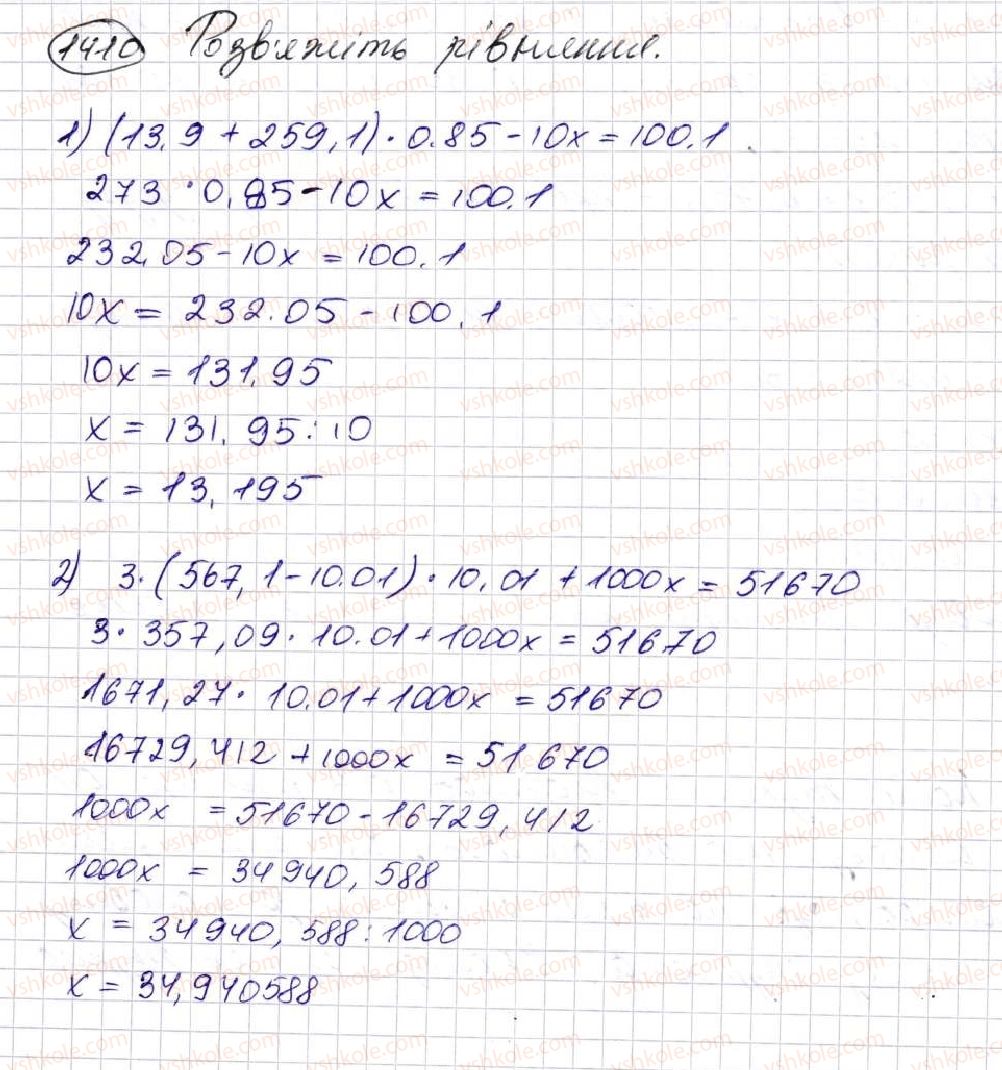 1410 Розв'яжіть рівняння.
1) (13,9 + 259,1) · 0.85 - 10x = 100.1
273 · 0,85 - 10x = 100.1
232,05 - 10x = 100.1
10x = 232.05 - 100.1
10x = 131,95
x = 131,95 : 10
x = 13,195
2) 3·(567,1 - 10.01) · 10,01 + 1000x = 51670
3 · 357,09 · 10.01 + 1000x = 51670
1671,27 · 10.01 + 1000x = 51670
16729,412 + 1000x = 51 670
1000x = 51670 - 16729,412
1000x = 34940,588
x = 34940,588 : 1000
x = 34,940588